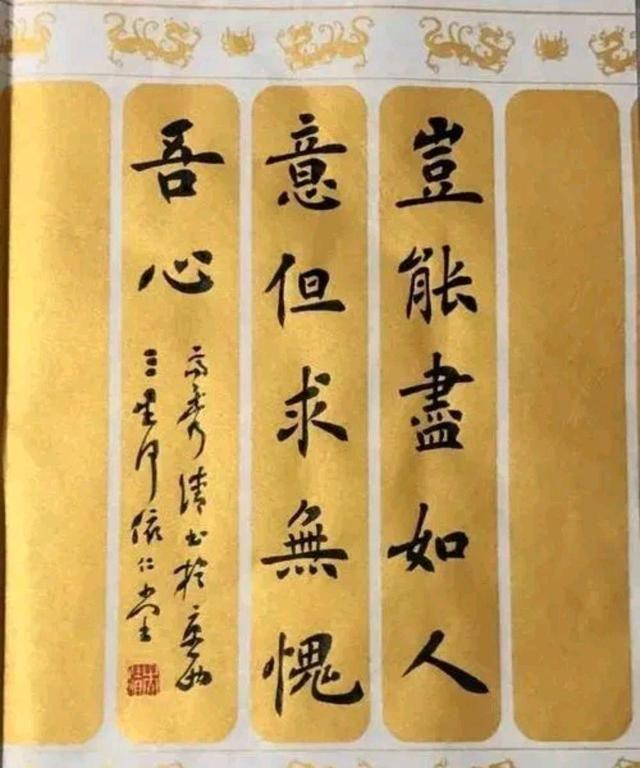 豈能盡如人
意但求無愧
吾心
高秀清書於
三生月依仁堂